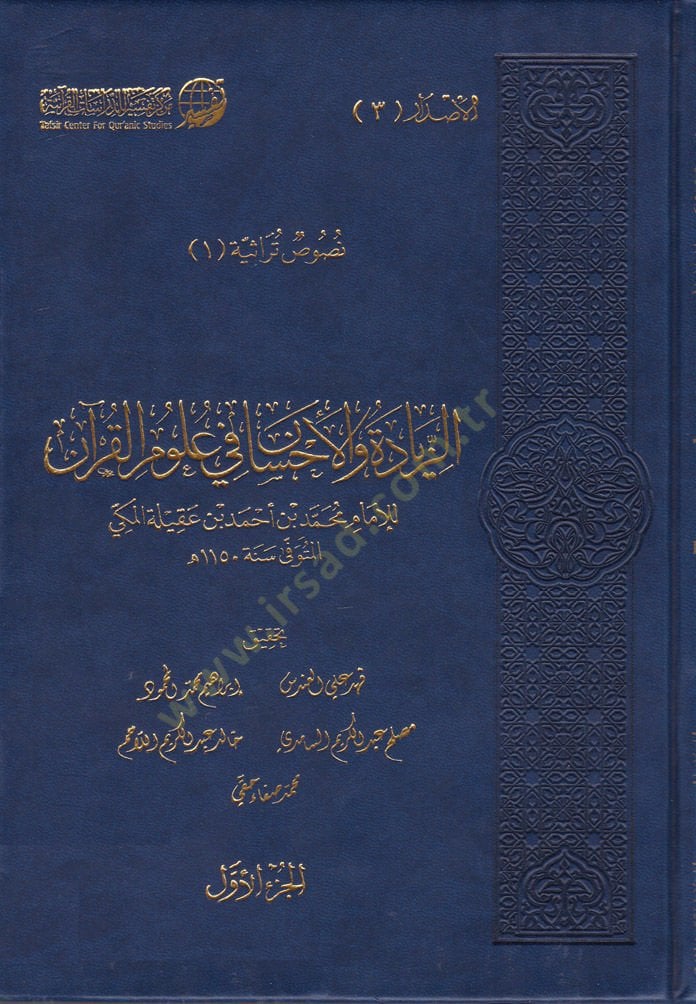 مركز تفسير للدراسات القرآنية
Tafsir Center For Qur'anic Studies
تفسير
الإصدار (٣)
نصُوصٌ تُراثيّة (١)
الزّيَادَة وَالإِحْسَان فِي عُلُومِ القُرآن
للإمَامِ مُحَمّد بْن أحْمَد بْن عَقِيلَة المَكّي
المتُوَفّى سَنَة ١١٥٠هـ
تحقيق
فهد علي العندس إبراهيم محمد المحمود
مصلح عبد الكريم السامدي خالد عبد الكريم اللاحم
محمد صفاء حقي
الجزء الأوّل
www.irsad.com.tr